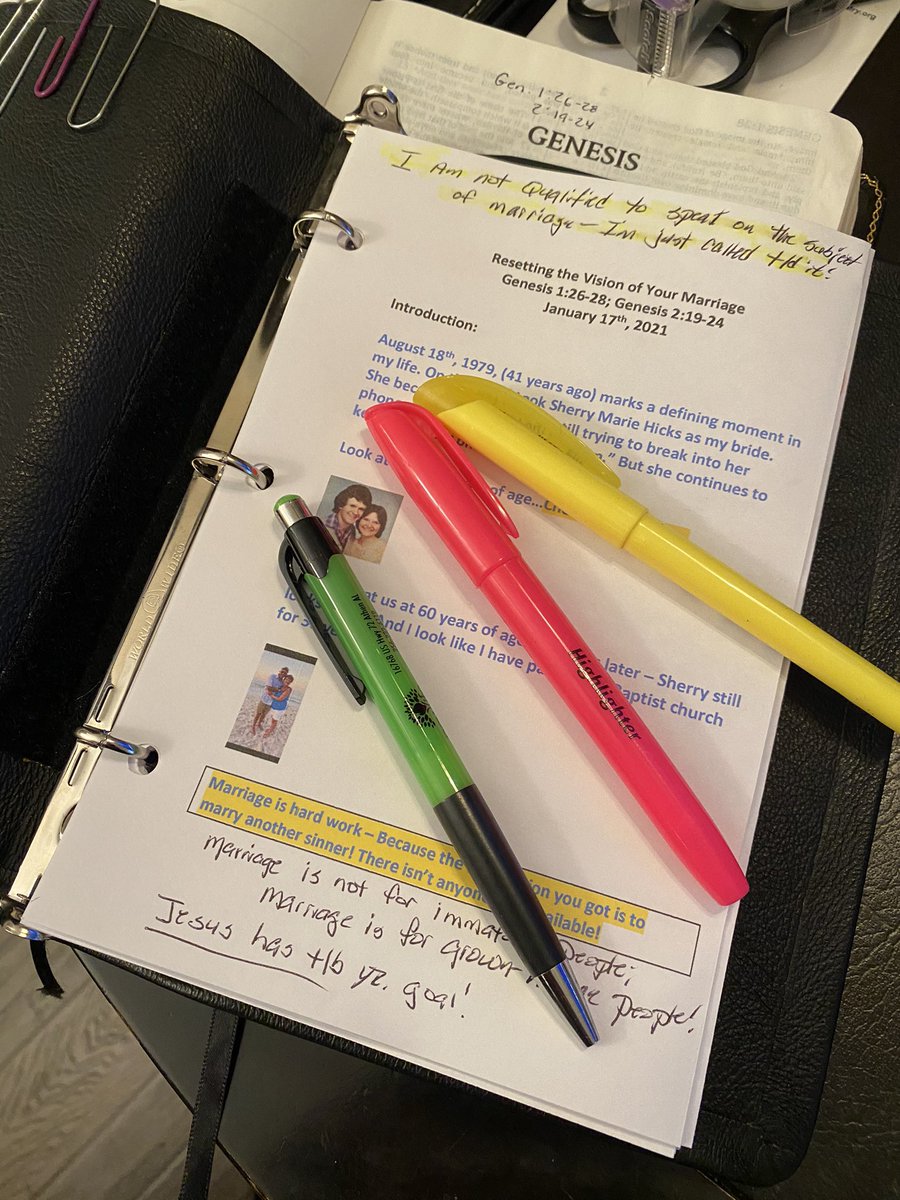 ry.org
Gen: 1:26-28
2:19-24
GENESIS
I Am not Qualified to speak on the subject
of marriage - I'm just called to it!
Resetting the Vision of Your Marriage
Genesis 1:26-28; Genesis 2:19-24
January 17th, 2021
Introduction:
August 18th, 1979, (41 years ago) marks a defining moment in
my life. On took Sherry Marie Hicks as my bride.
She bec still trying to break into her
phon ." But she continues to
ke
Look at of age...Ch
at us at 60 years of age later – Sherry still
lo And I look like I have pa Baptist church
for 3 ye
WORLD WIDE
16768 US Hwy 72 Athen AL
Highlighter
Marriage is hard work – Because the on you got is to
marry another sinner! There isn't anyon ailable!
Marriage is not for immat People;
Marriage is for grown People!
Jesus has this yr. goal!